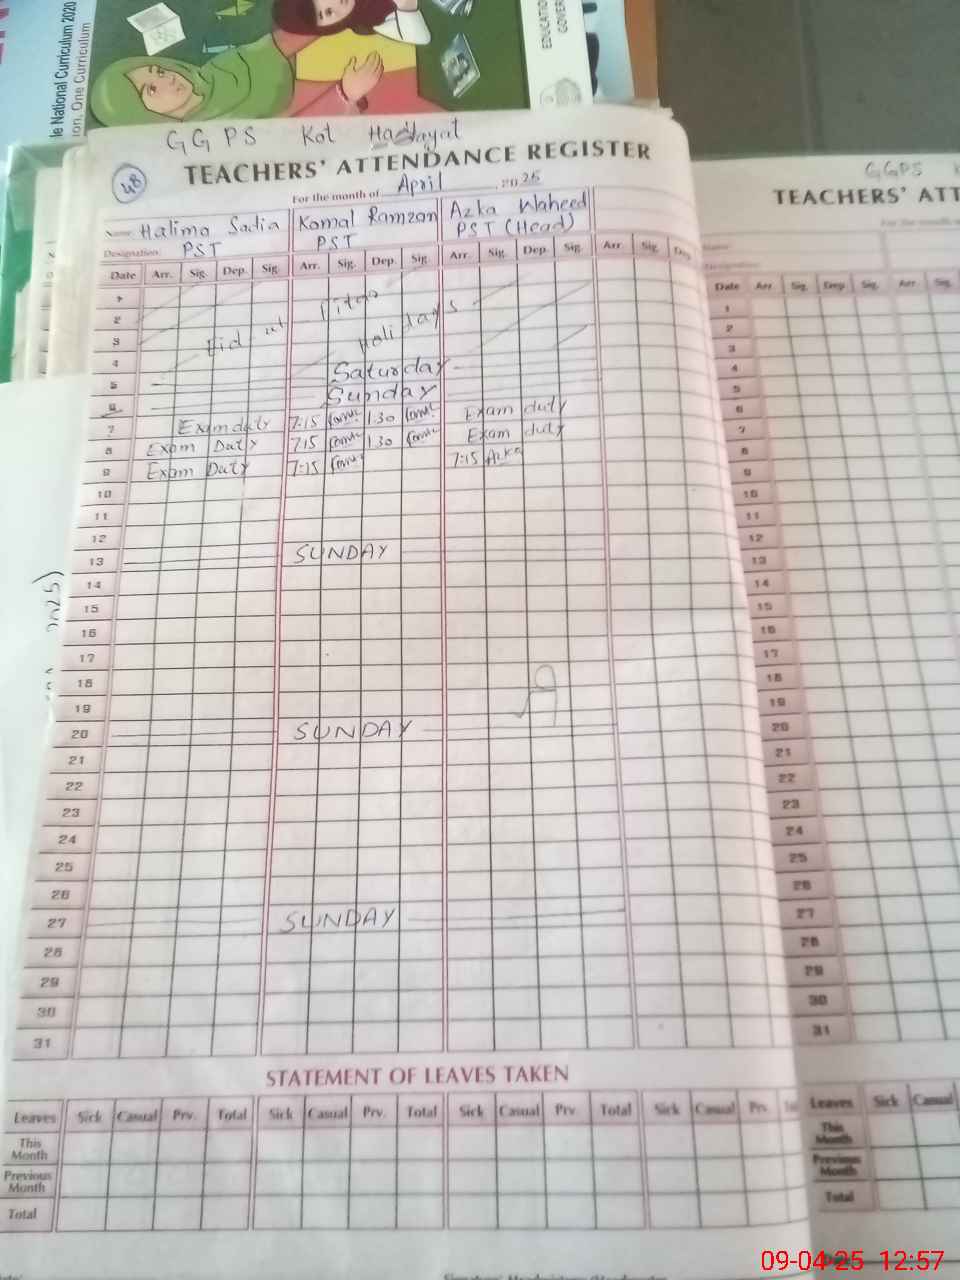 le National Curriculum 2020
ion, One Curriculum
EDUCATION
GOVER
GGPS Kot Hadayat
TEACHERS' ATTENDANCE REGISTER
48
For the month of April, 2025
Name: Halima Sadia Komal Ramzan Azka Waheed
Designation: PST PST PST (Head)
Date Arr. Sig. Dep. Sig. Arr. Sig. Dep. Sig. Arr. Sig. Dep. Sig. Arr. Sig. Dep.
1
2 Eid ul Fitar
3 Holidays
4
5 Saturday
6 Sunday
7 Exam duty 7:15 1:30 Exam duty
8 Exam Duty 7:15 1:30 Exam duty
9 Exam Duty 7:15 7:15 Azka
10
11
12
13 SUNDAY
14
15
16
17
18
19
20 SUNDAY
21
22
23
24
25
26
27 SUNDAY
28
29
30
31
STATEMENT OF LEAVES TAKEN
Leaves Sick Casual Prv. Total Sick Casual Prv. Total Sick Casual Prv. Total Sick Casual Prv.
This Month
Previous Month
Total
GGPS
TEACHERS' ATT
Date Arr. Sig. Dep. Sig. Arr. Sig.
1
2
3
4
5
6
7
8
9
10
11
12
13
14
15
16
17
18
19
20
21
22
23
24
25
26
27
28
29
30
31
Leaves Sick Casual
This Month
Previous Month
Total
2025)
09-04-25 12:57